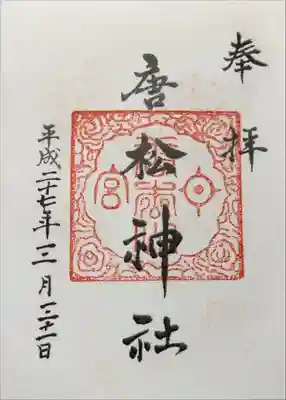 奉拝
唐松神社
平成二十七年三月三十一日
宮